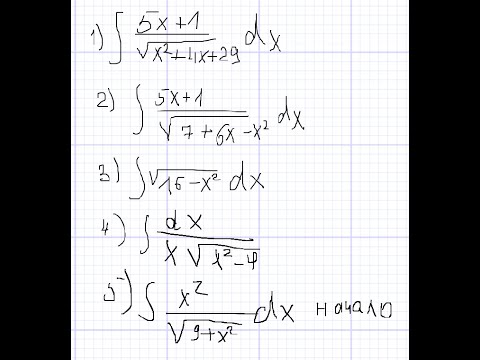 1) ∫ (5x+1)/√(x²+4x+29) dx
2) ∫ (5x+1)/√(7+6x-x²) dx
3) ∫ √(16-x²) dx
4) ∫ dx/(x√(x²-4))
5) ∫ x²/√(9+x²) dx начало